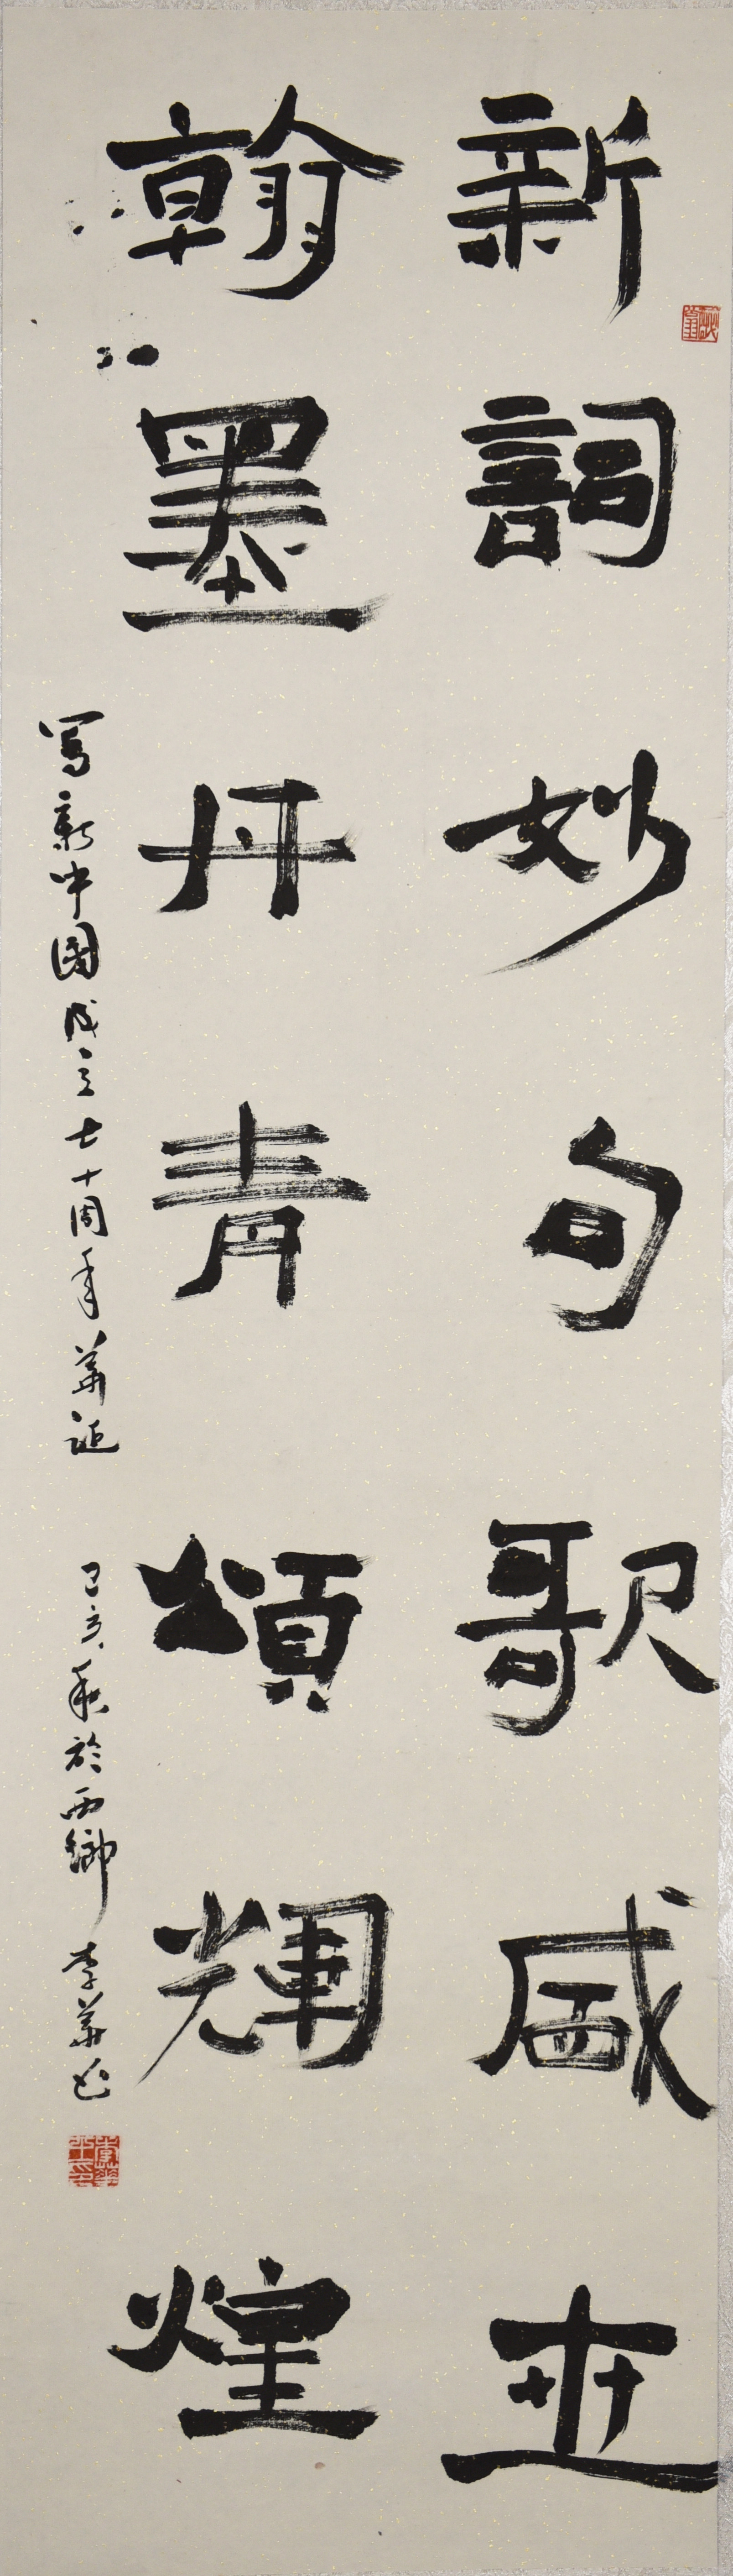 新詞妙句歌盛世
翰墨丹青頌輝煌
寫新中國成立七十周年華誕
己亥秋於西鄉 李華